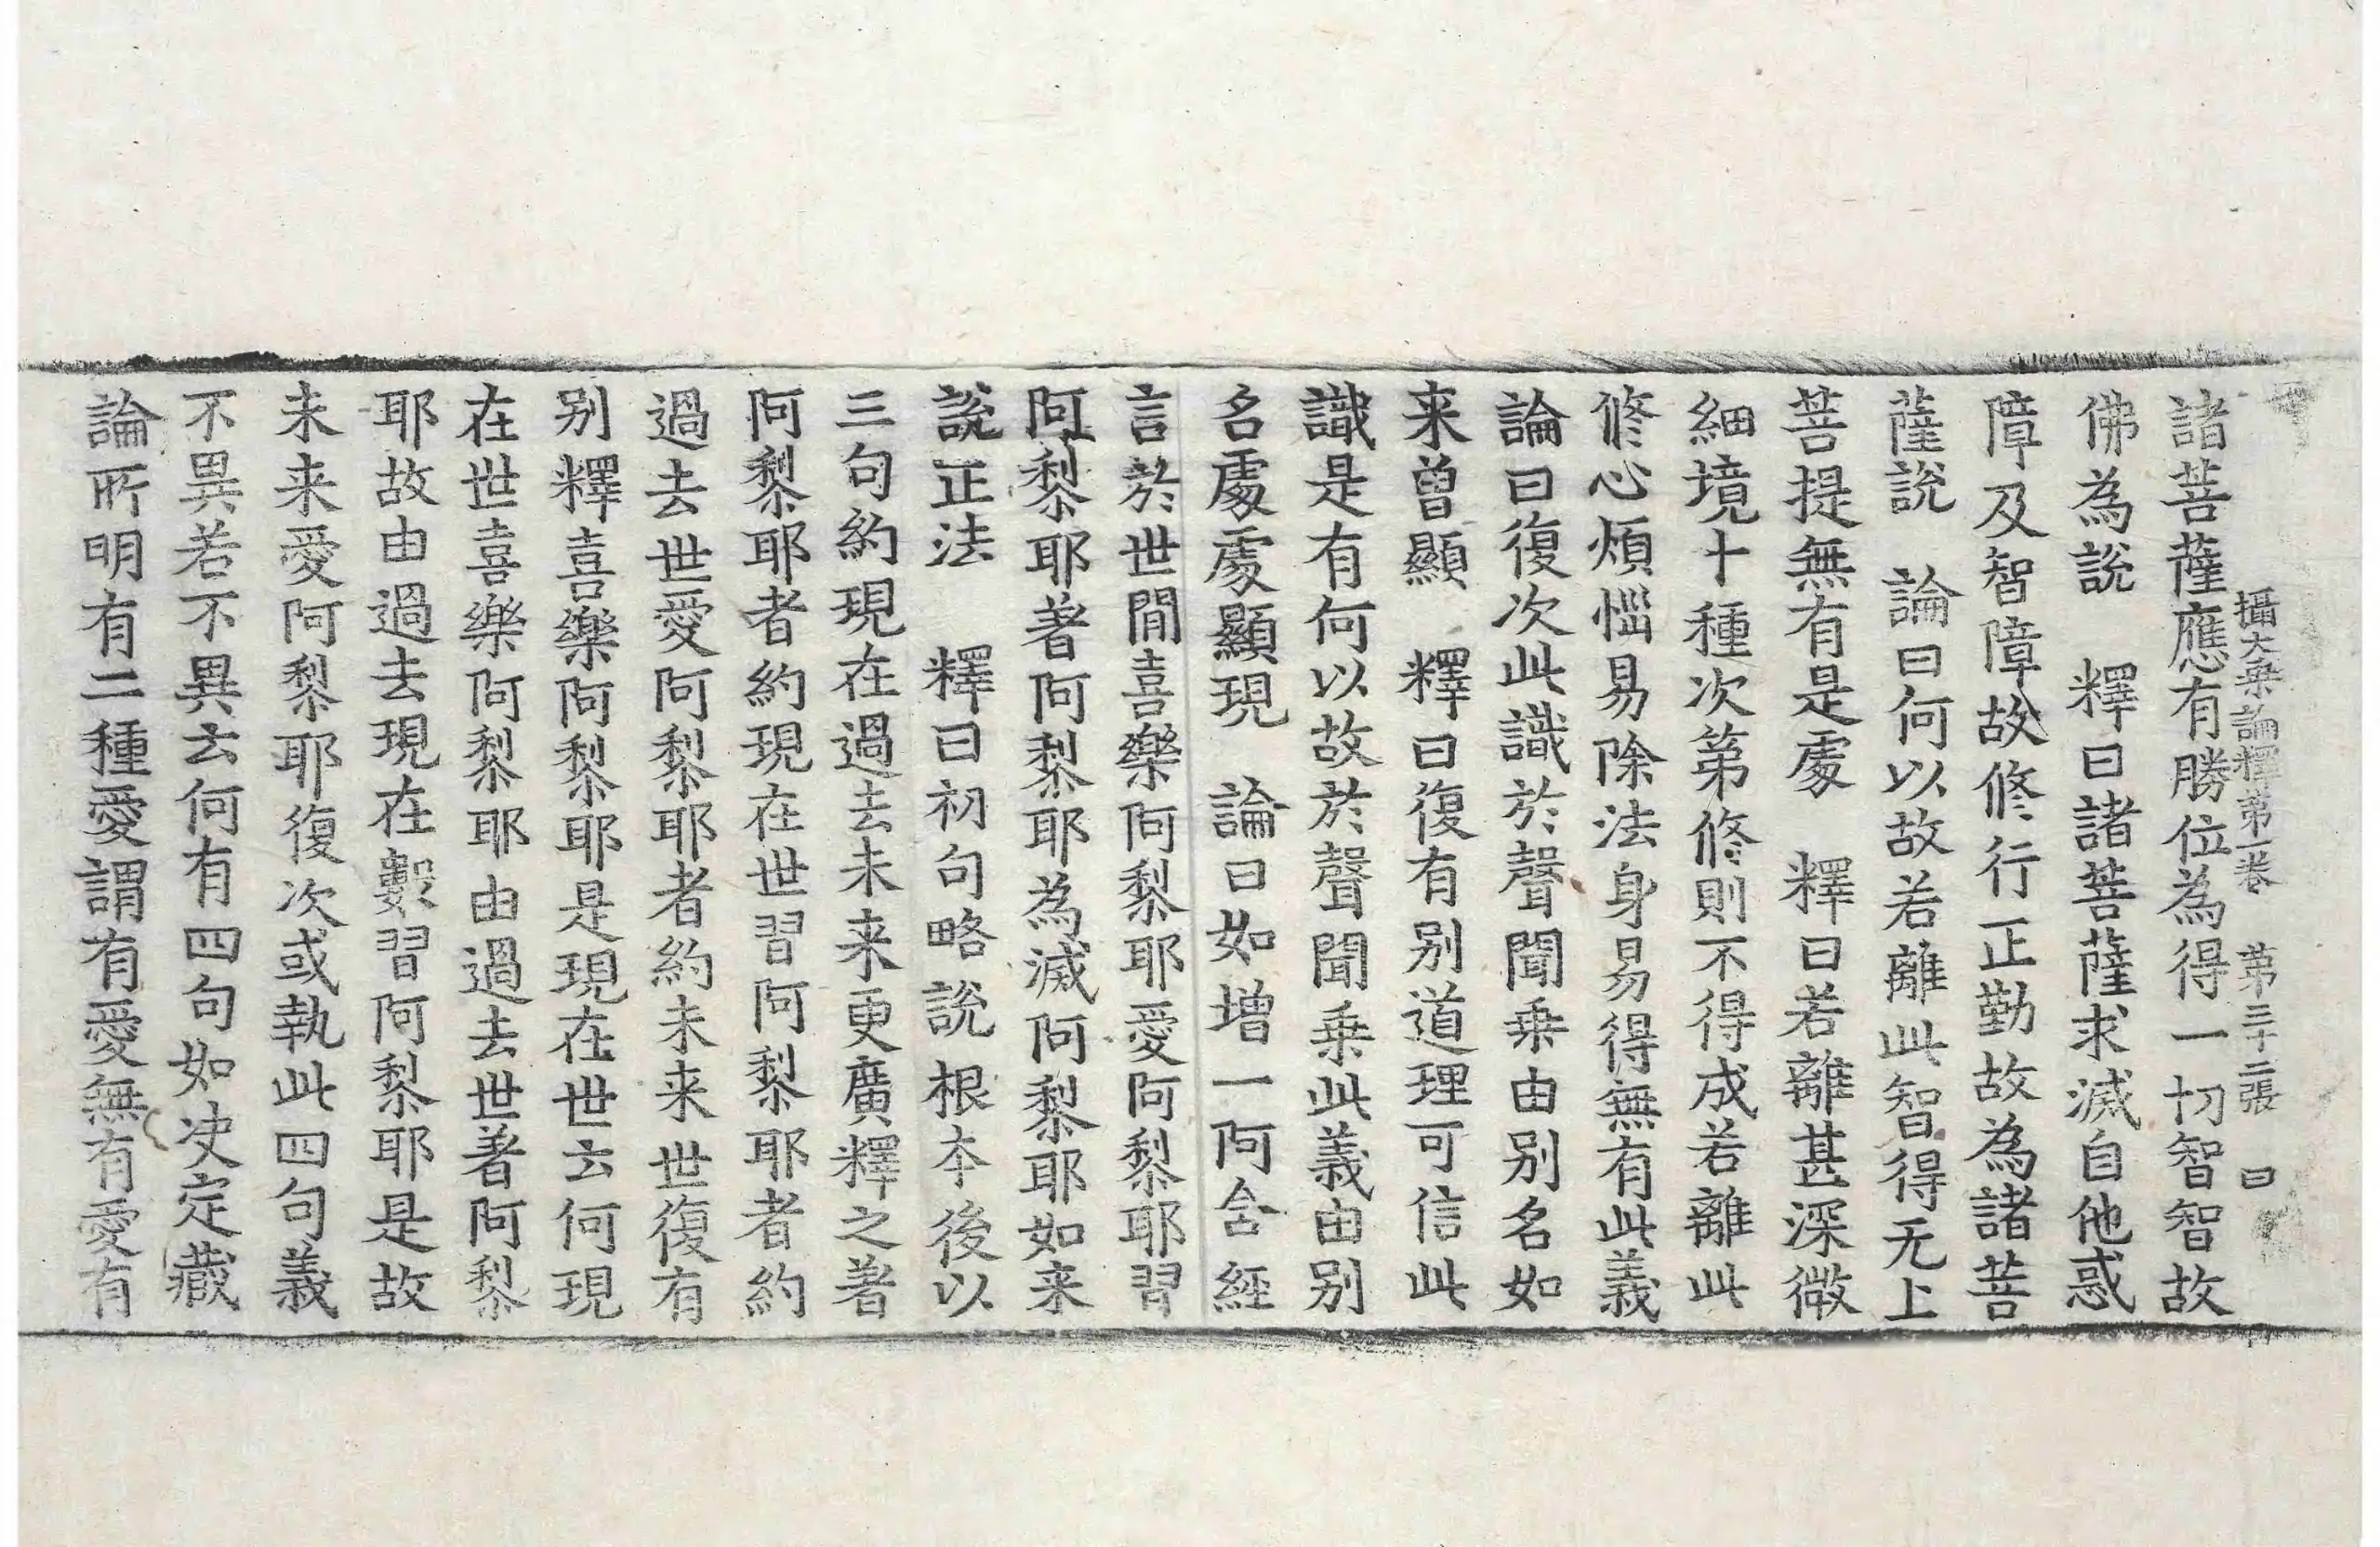 攝大乗論釋第一卷　第三十二張　曰
諸菩薩應有勝位為得一切智智故
佛為說　釋曰諸菩薩求滅自他惑
障及智障故修行正勤故為諸菩
薩說　論曰何以故若離此智得无上
菩提無有是處　釋曰若離甚深微
細境十種次第修則不得成若離此
修心煩惱易除法身易得無有此義
論曰復次此識於聲聞乗由別名如
来曾顯　釋曰復有別道理可信此
識是有何以故於聲聞乗此義由別
名處處顯現　論曰如增一阿含經
言於世間喜樂阿黎耶愛阿黎耶習
阿黎耶著阿黎耶為滅阿黎耶如来
說正法　釋曰初句略說根本後以
三句約現在過去未来更廣釋之著
阿黎耶者約現在世習阿黎耶者約
過去世愛阿黎耶者約未来世復有
別釋喜樂阿黎耶是現在世云何現
在世喜樂阿黎耶由過去世著阿黎
耶故由過去現在數習阿黎耶是故
未来愛阿黎耶復次或執此四句義
不異若不異云何有四句如决定藏
論所明有二種愛謂有愛無有愛有